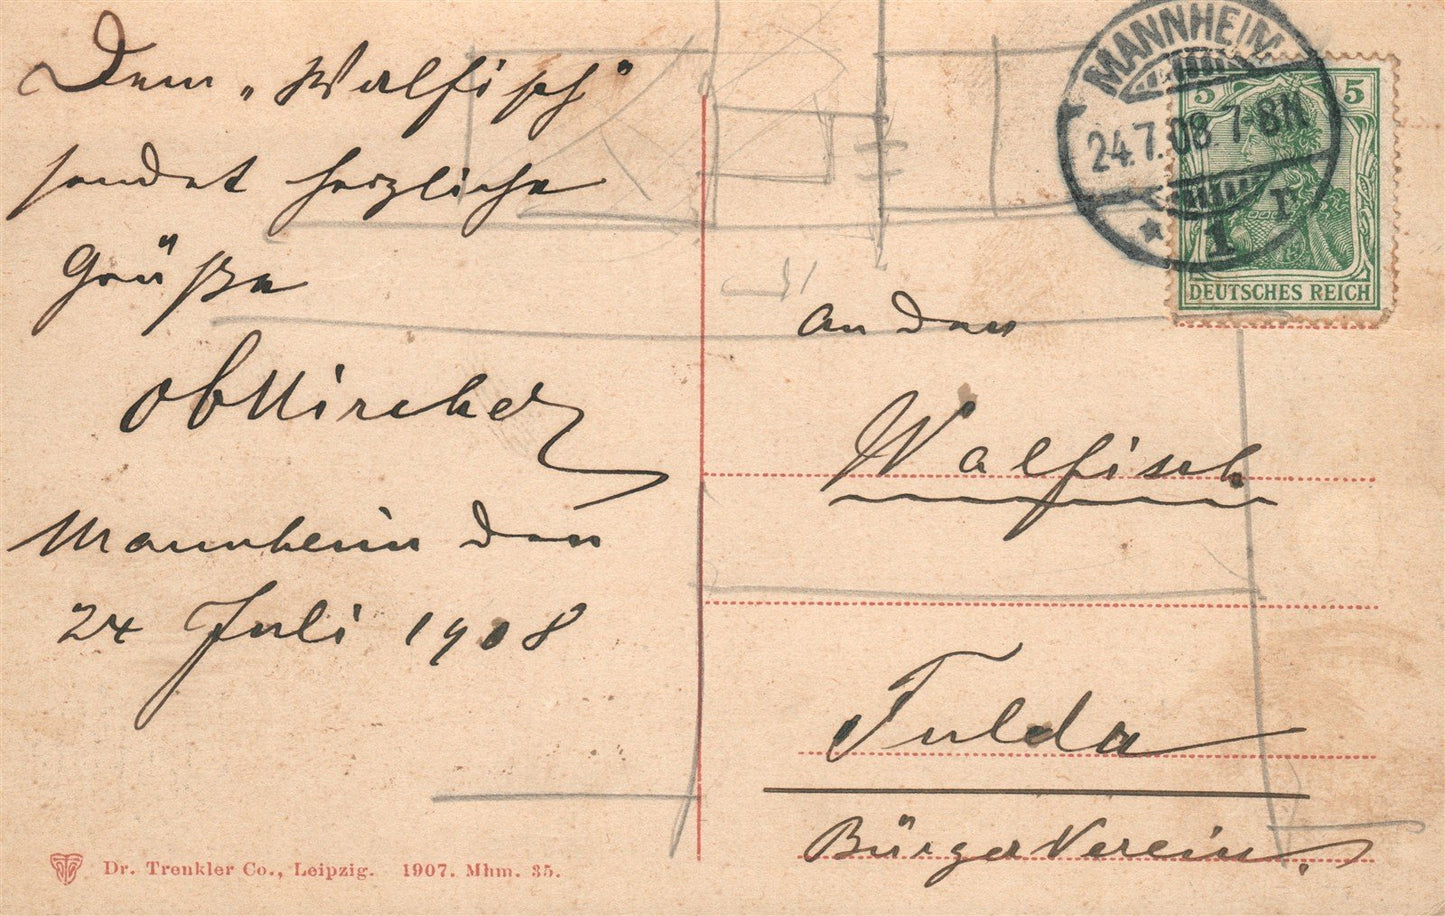 Dem „Walfisch"
sendet herzliche
Grüße
Mannheim den
24 Juli 1908
Dr. Trenkler Co., Leipzig. 1907. Mhm. 35.
MANNHEIM
24.7.08. 7-8N
* 1 r
5 5
DEUTSCHES REICH
An den
Walfisch
Fulda
Bürger Verein.